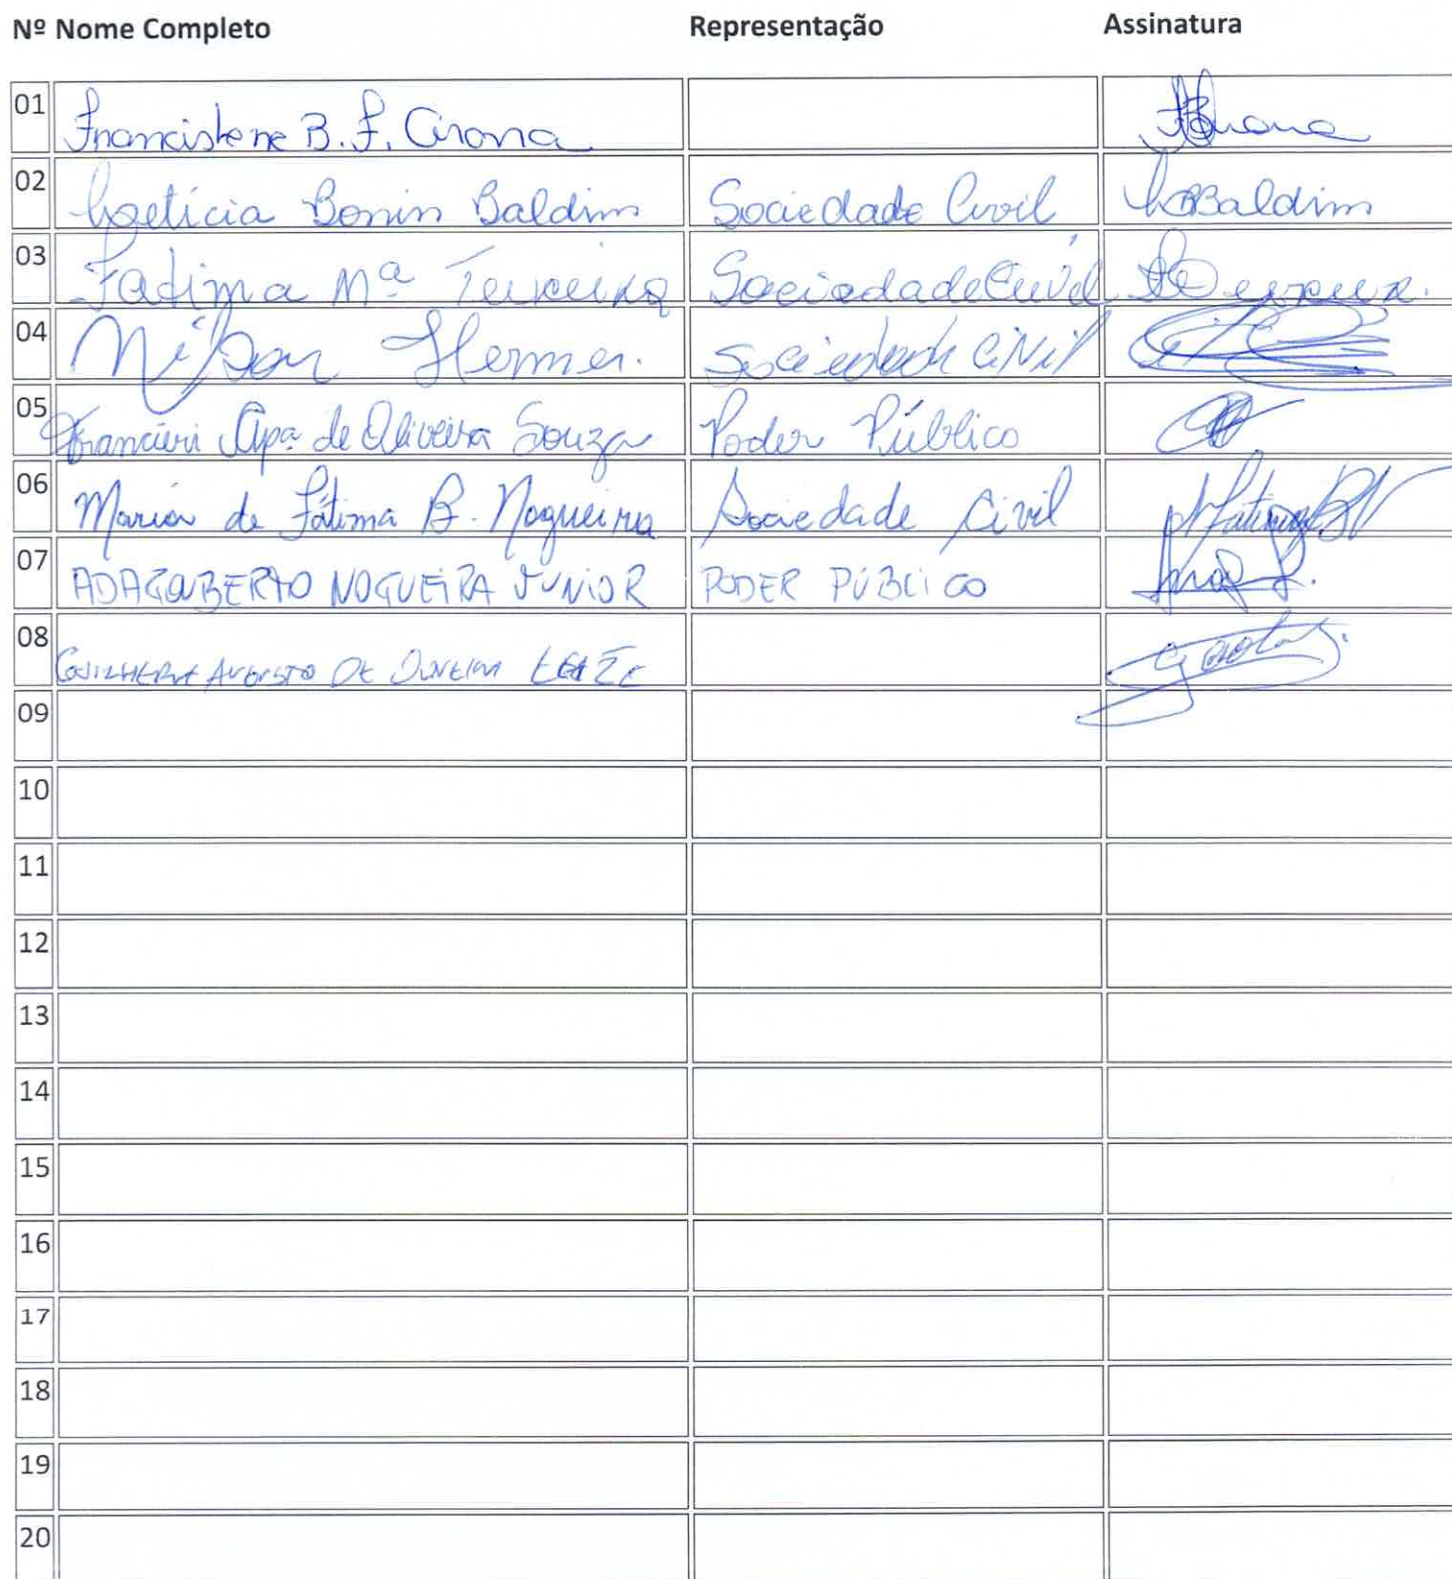 Nº Nome Completo Representação Assinatura
01 Francislene B. F. Arona
02 Laetícia Bonin Baldim Sociedade Civil LBBaldim
03 Fatima Mª Teixeira Sociedade Civil
04 Nilson Hermer. Sociedade Civil
05 Francieri Apª de Oliveira Souza Poder Público
06 Maria de Fátima B. Nogueira Sociedade Civil MFatimaBN
07 ADAGOUBERTO NOGUEIRA JUNIOR PODER PÚBLICO
08 GUILHERME AUGUSTO DE OLIVEIRA
09
10
11
12
13
14
15
16
17
18
19
20